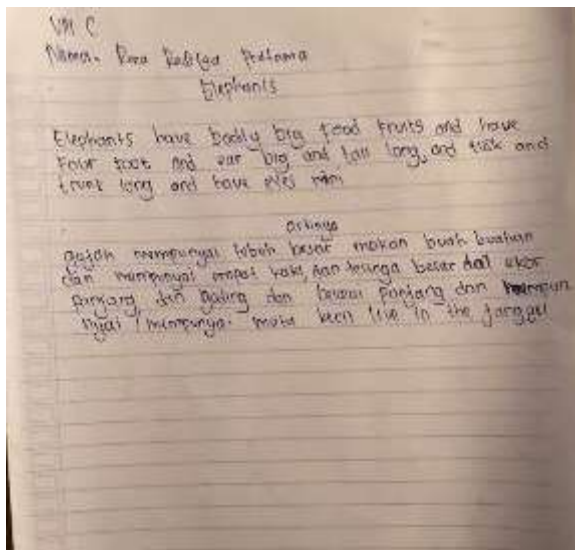 VIII C
Nama. Rava Raditya Pratama
Elephants
Elephants have bodly big food fruits and have
Four foot and ear big and tail long, and tusk and
trunk long and have eyes mini
artinya
gajah mempunyai tubuh besar makan buah buahan
dan mempunyai empat kaki, dan telinga besar dan ekor
panjang, dan gading dan belalai panjang dan mempun
nyai / mempunyai mata kecil live in the janggel